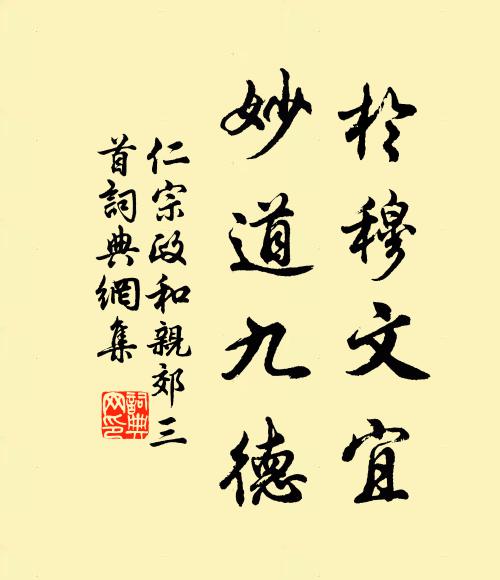 於穆文宜
妙道九德
仁宗政和親郊三
首詞典網集
詞典
网印